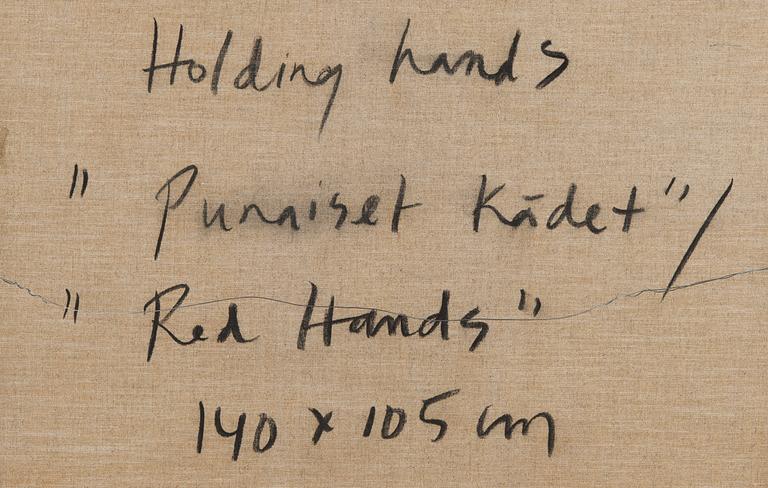 Holding hands
" Punaiset Kädet" /
" Red Hands"
140 x 105 cm